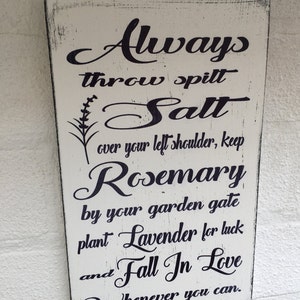 Always
throw spilt
Salt
over your left shoulder, keep
Rosemary
by your garden gate
plant Lavender for luck
and Fall In Love
Whenever you can.